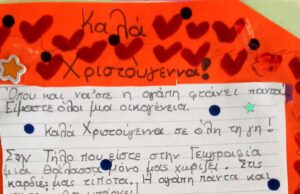 Καλά
Χριστούγεννα!
Όπου και να'σε η αγάπη φτάνει παντα
Είμαστε όλοι μια οικογένεια.
Καλά Χριστούγεννα σε όλη τη γη!
Στην Τήλο που είστε στην Γεωγραφία
μια θάλασσα μόνο μας χωρίζει. Στις
καρδιές μας τίποτα. Η αγάπη παντα και